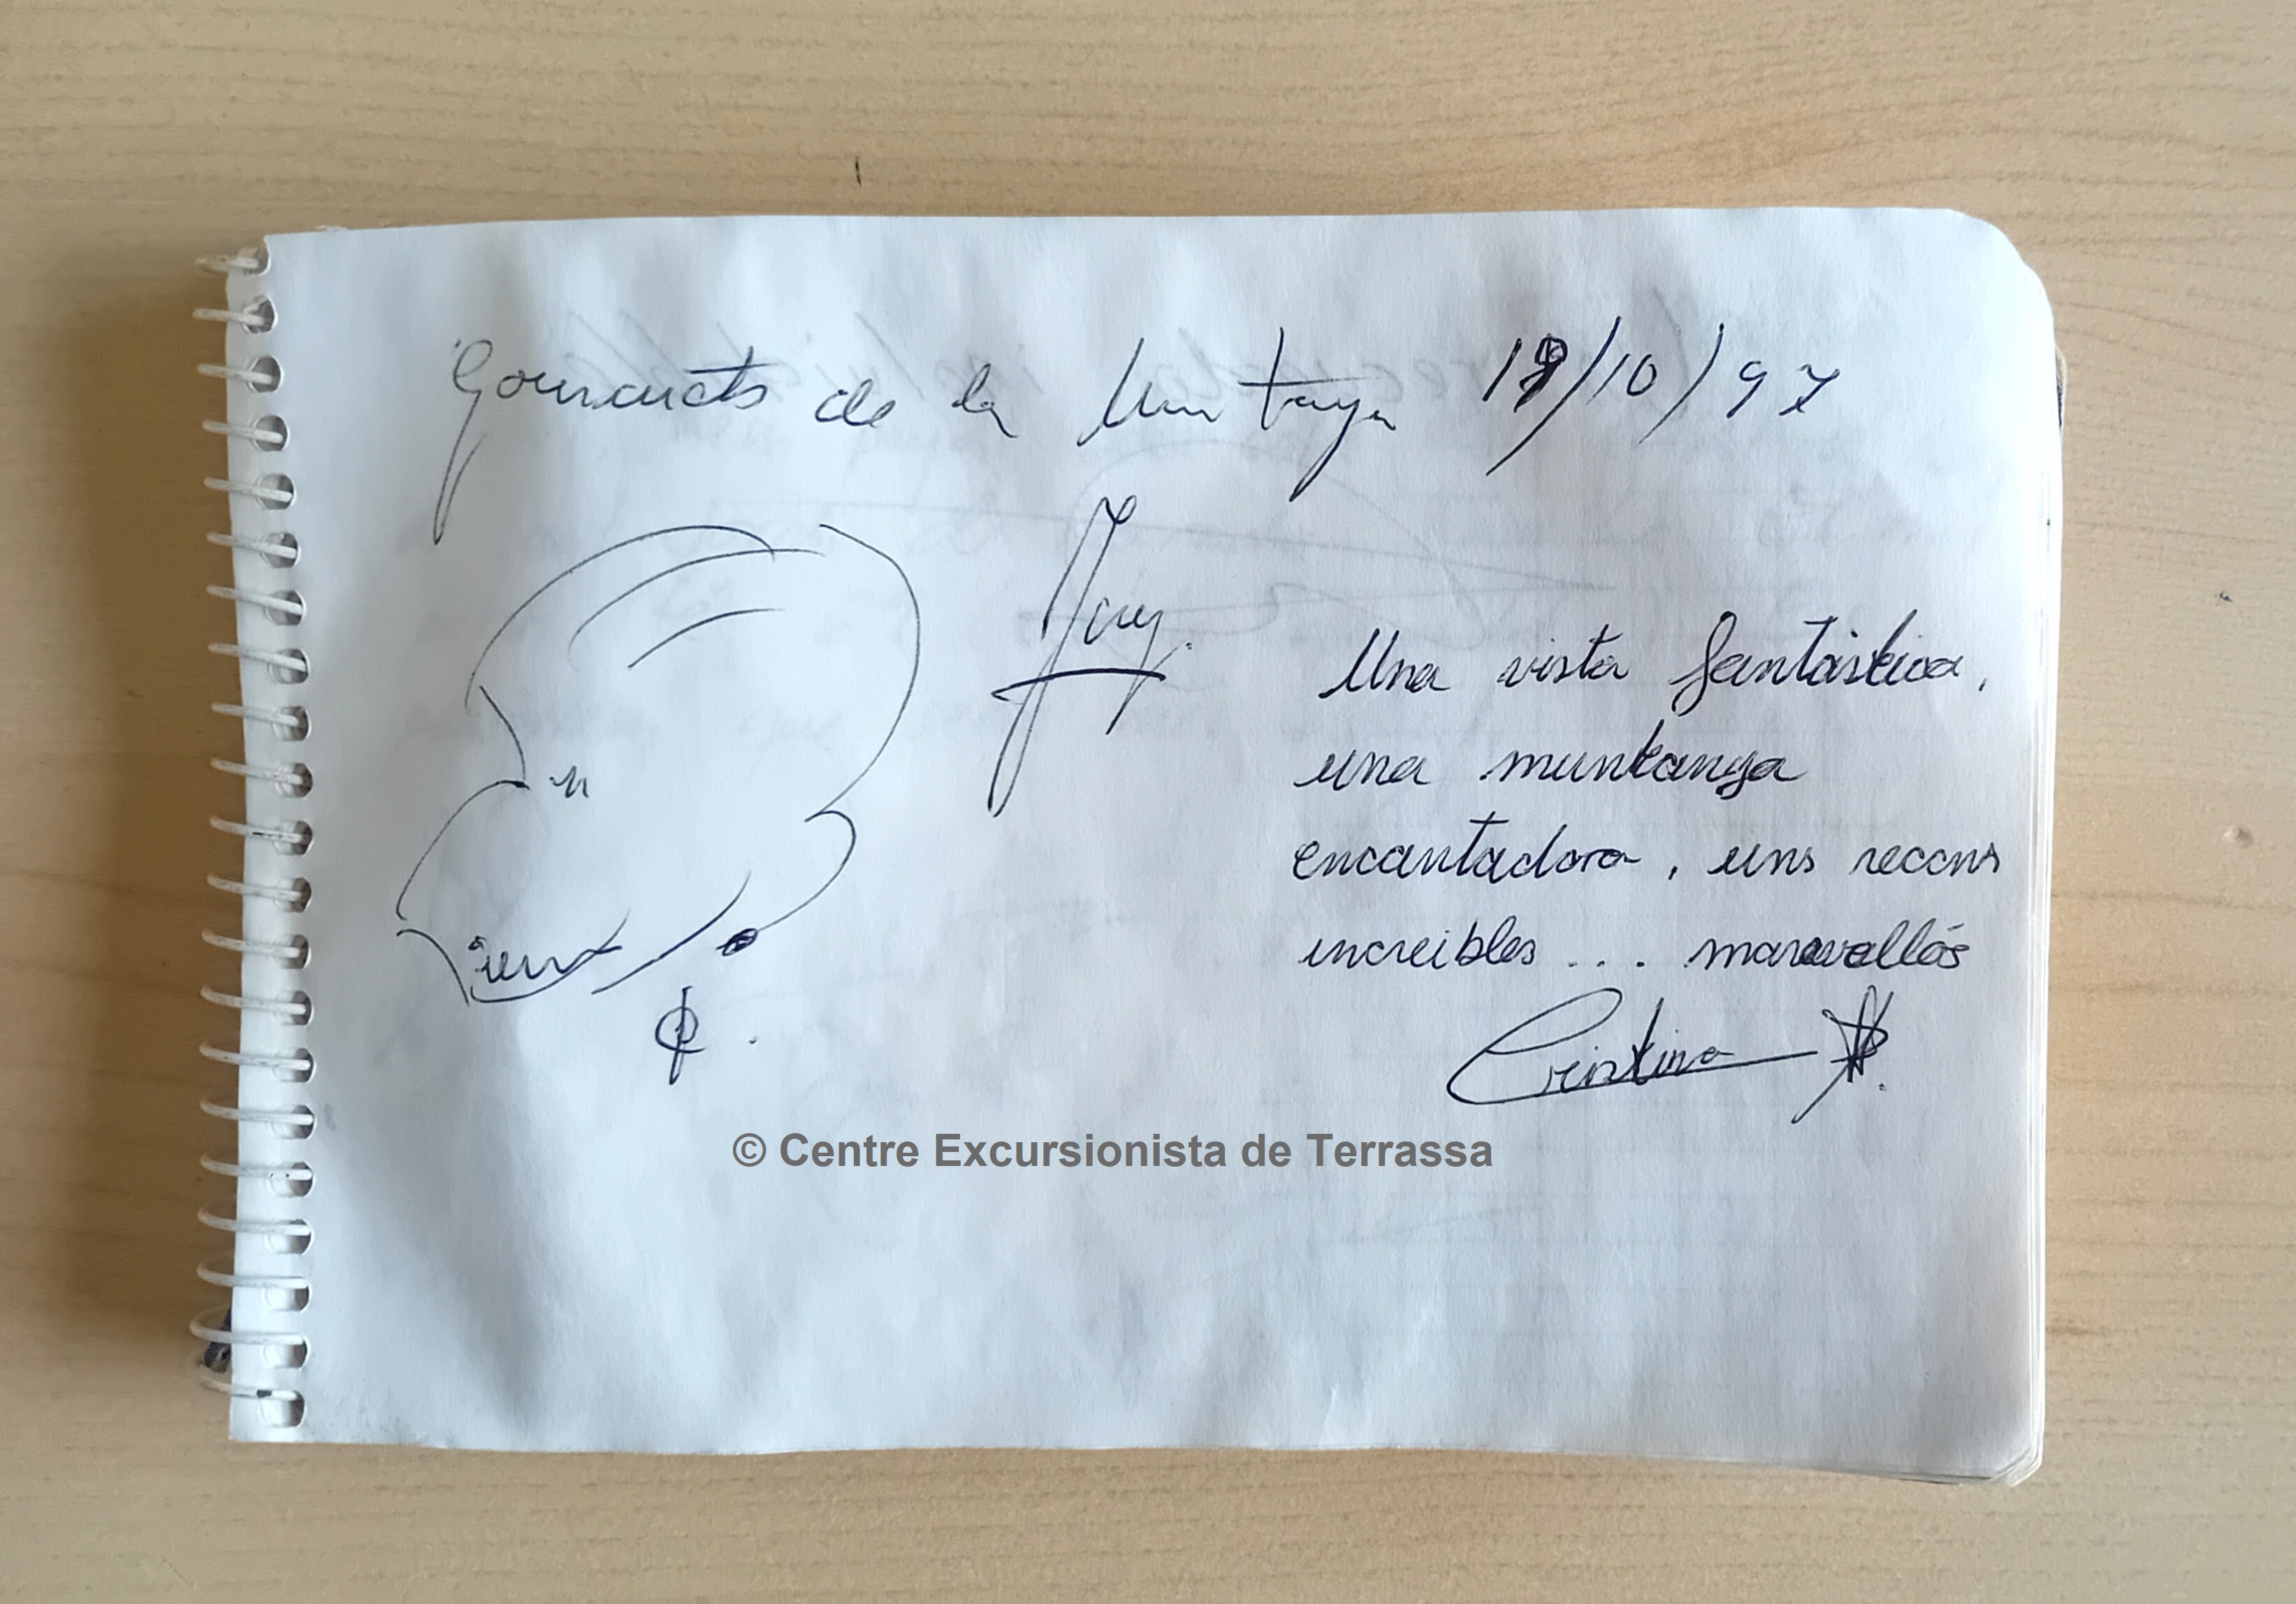 Gourmets de la Muntaya 19/10/97
Una vista fantàstica,
una muntanya
encantadora, uns racons
increibles... maravellós
Cristina
© Centre Excursionista de Terrassa